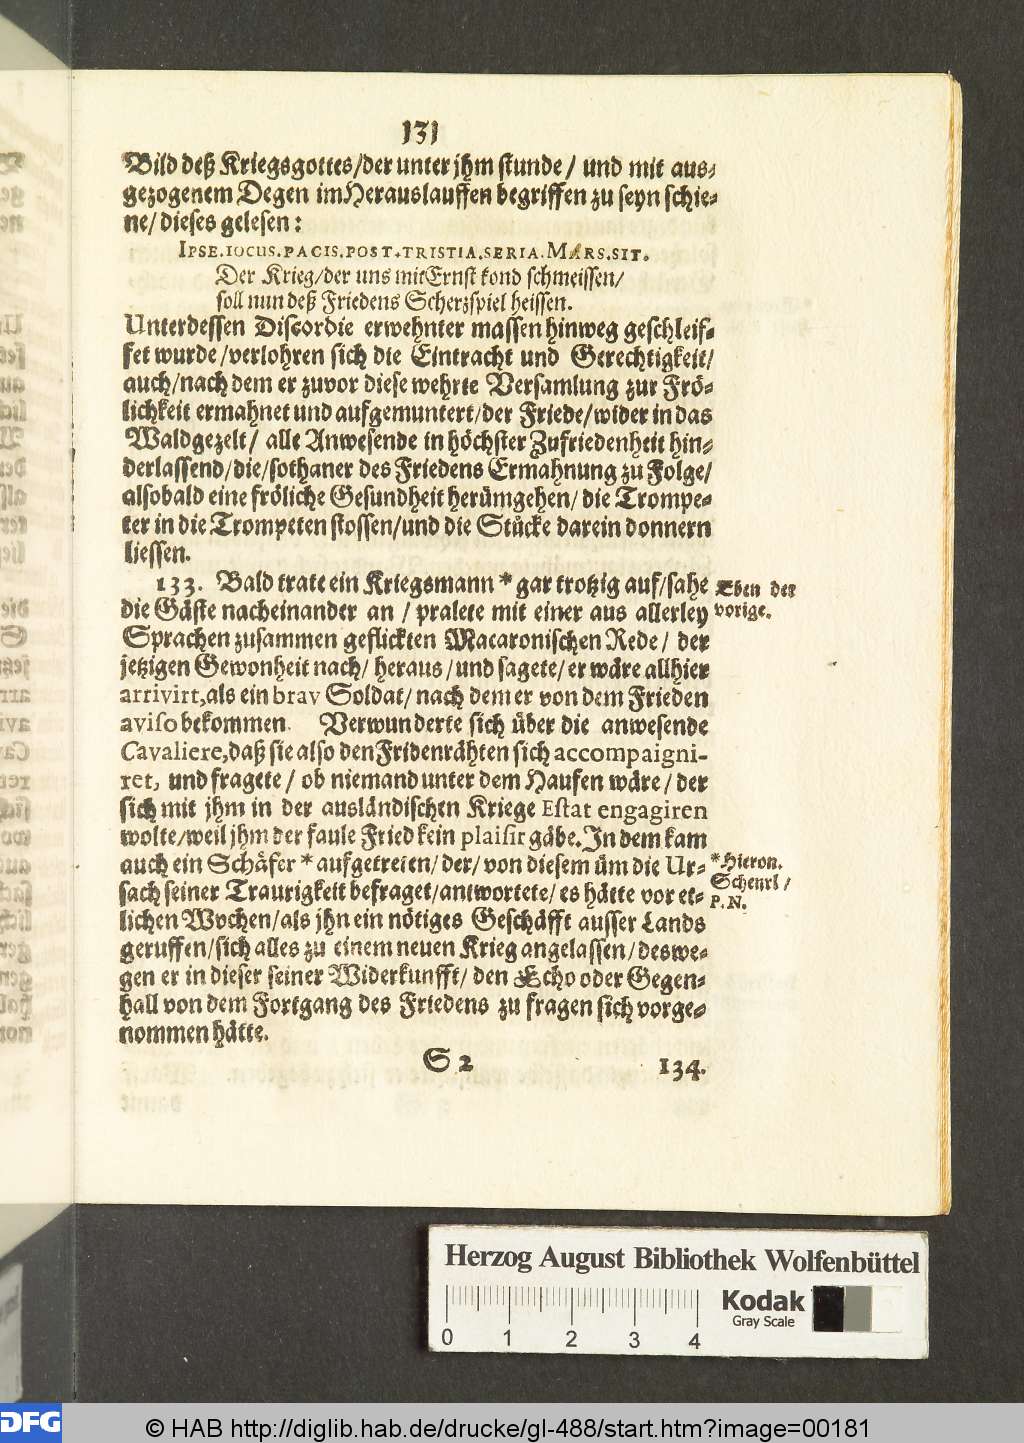 131
Bild deß Kriegsgottes/der unter jhm stunde/ und mit aus-
gezogenem Degen im Herauslauffen begriffen zu seyn schie-
ne/ dieses gelesen:
IPSE.IOCUS.PACIS.POST.TRISTIA.SERIA.MARS.SIT.
Der Krieg/der uns mit Ernst kond schmeissen/
soll nun deß Friedens Scherzspiel heissen.
Unterdessen Discordie erwehnter massen hinweg geschleif-
fet wurde/verlohren sich die Eintracht und Gerechtigkeit/
auch/nach dem er zuvor diese wehrte Versamlung zur Frö-
lichkeit ermahnet und aufgemuntert/der Friede/wider in das
Waldgezelt/ alle Anwesende in höchster Zufriedenheit hin-
derlassend/die/sothaner des Friedens Ermahnung zu Folge/
alsobald eine fröliche Gesundheit herümgehen/ die Trompe-
ter in die Trompeten stossen/und die Stücke darein donnern
liessen.
133. Bald trate ein Kriegsmann * gar trotzig auf/sahe
die Gäste nacheinander an / pralete mit einer aus allerley
Sprachen zusammen geflickten Macaronischen Rede/ der
jetzigen Gewonheit nach/ heraus/und sagete/er wäre allhier
arrivirt,als ein brav Soldat/ nach dem er von dem Frieden
aviso bekommen. Verwunderte sich über die anwesende
Cavaliere,daß sie also den Fridenrähten sich accompaigni-
ret, und fragete / ob niemand unter dem Haufen wäre/ der
sich mit jhm in der ausländischen Kriege Estat engagiren
wolte/weil jhm der faule Fried kein plaisir gäbe. In dem kam
auch ein Schäfer * aufgetreten/ der/ von diesem üm die Ur-
sach seiner Traurigkeit befraget/antwortete/ es hätte vor et-
lichen Wochen/als jhn ein nötiges Geschäfft ausser Lands
geruffen/sich alles zu einem neuen Krieg angelassen/deswe-
gen er in dieser seiner Widerkunfft/ den Echo oder Gegen-
hall von dem Fortgang des Friedens zu fragen sich vorge-
nommen hätte.
Eben der
vorige.
*Hieron.
Scheurl/
P.N.
S 2 134.
Herzog August Bibliothek Wolfenbüttel
Kodak
Gray Scale
0 1 2 3 4
DFG
© HAB http://diglib.hab.de/drucke/gl-488/start.htm?image=00181